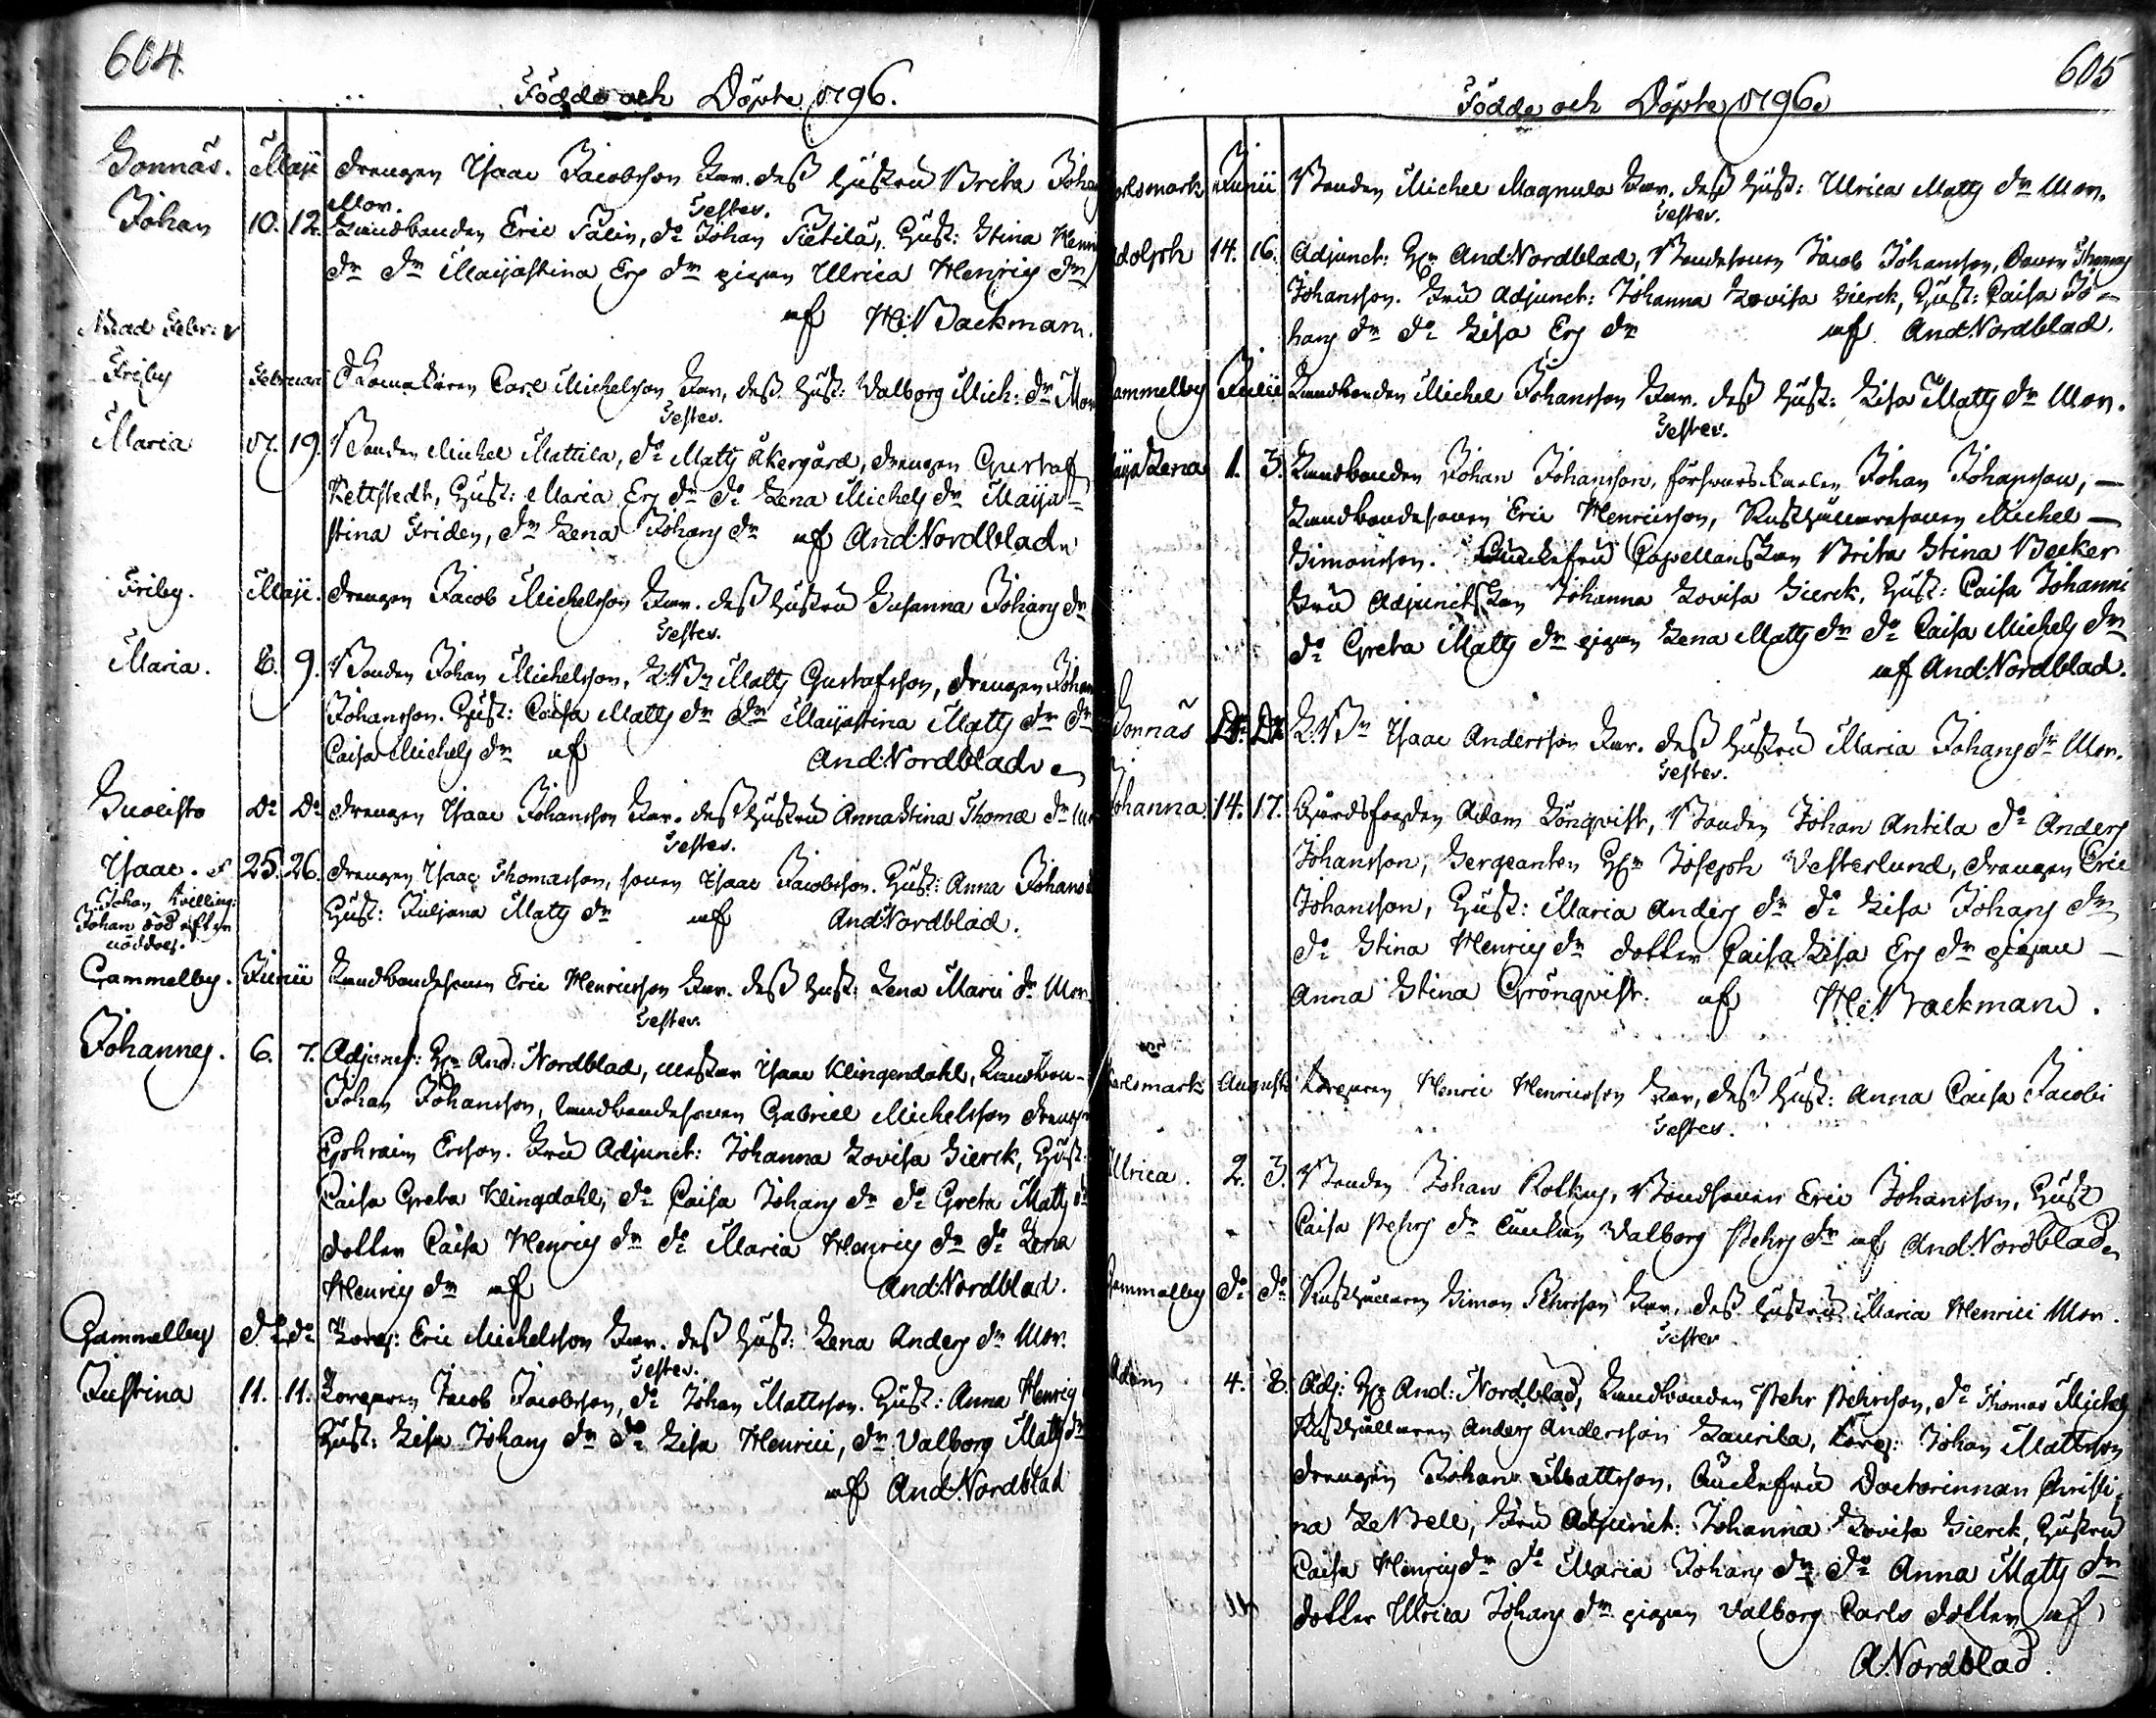 604.
Födde och Döpte 1796.
Sonnäs. Maji drengen Isaac Jacobsson Far. dess hustru Brita Johans
Mor. Testes.
Johan 10. 12. Landbonden Eric Salin, do Johan Sietilä, Hust: Stina Henri
dr dr Maijastina Ers dr pigan Ulrica Henrics dr
af H: Backman.
Frilby Februari Carl Michelsson Far, dess hust: Valborg Mich: dr Mor
Testes.
Maria 17. 19. Bonden Michel Mattila, do Matts Åkergård, drengen Gustaf
Kettstedt, Hust: Maria Ers dr do Lena Michels dr Maija
stina Friden, dr Lena Johans dr af And: Nordblad
Friby. Maji. drengen Jacob Michelsson Far. dess hustru Susanna Johans dr
Testes.
Maria. 8. 9. Bonden Johan Michelsson, L:Bn Matts Gustafsson, drengen Johan
Johansson. Hust: Caisa Matts dr dr Maijastina Matts dr dr
Caisa Michels dr af And: Nordblad
do do drengen Isaac Johansson Far. dess hustru Anna Stina Thomæ dr
Testes.
Isaac. 25. 26. drengen Isaac Thomasson, sonen Isaac Jacobsson. Hust: Anna Johans
Johan tvilling:
Hust: Juliana Matts dr af And: Nordblad.
Johan död efter
nöddop.
Gammelby. Junii Landbondesonen Eric Henricsson Far. dess hust: Lena Marii dr Mor
Testes.
Johannes. 6. 7. Adjunct: Hr And: Nordblad, Isaac Klingendahl, Landbon-
Johan Johansson, landbondesonen Gabriel Michelsson drengen
Ephraim Ersson. Fru Adjunct: Johanna Lovisa Gierck, Hust:
Caisa Greta Klingdahl, do Caisa Johans dr do Greta Matts dr
dotter Caisa Henrics dr do Maria Henrics dr do Lena
Henrics dr af And: Nordblad.
Gammelby do do Torp: Eric Michelsson Far. dess hust: Lena Anders dr Mor.
Testes.
Justina 11. 11. Torparen Jacob Jacobsson, do Johan Mattsson. Hust: Anna Henrics
Hust: Lisa Johans dr do Lisa Henrici, dr Valborg Matts dr
af And: Nordblad
605
Födde och Döpte 1796.
Carlsmark Junii Bonden Michel Magnula Far. dess hust: Ulrica Matts dr Mor.
Testes.
Adolph 14. 16. Adjunct: Hr And: Nordblad, Bondesonen Jacob Johansson, Thomas
Johansson. Fru Adjunct: Johanna Lovisa Gierck, Hust: Caisa Jo-
hans dr do Lisa Ers dr af And: Nordblad.
Gammelby Julii Landbonden Michel Johansson Far. dess hust: Lisa Matts dr Mor.
Testes.
Maija Lena 1. 3. Landbonden Johan Johansson, försvars Karlen Johan Johansson,
Landbondesonen Eric Henricsson, Rusthållaresonen Michel
Simonsson. Enckefru Capellanskan Brita Stina Becker
Fru Adjunctskan Johanna Lovisa Gierck, Hust: Caisa Johanni
do Greta Matts dr pigan Lena Matts dr do Caisa Michels dr
af And: Nordblad.
Sonnäs do do L:Bn Isaac Andersson Far. dess hustru Maria Johans dr Mor.
Testes.
Johanna. 14. 17. Gårdsfogden Adam Lönqvist, Bonden Johan Antila do Anders
Johansson, Sergeanten Hr Joseph Vesterlund, drengen Eric
Johansson, Hust: Maria Anders dr do Lisa Johans dr
do Stina Henrics dr dotter Caisa Lisa Ers dr pigan
Anna Stina Grönqvist. af H: Backman.
Carlsmark Augusti Torparen Henric Henricsson Far, dess hust: Anna Caisa Jacobi
Testes.
Ulrica. 2. 3. Bonden Johan Rolkus, Bondsonen Eric Johansson, Hust
Caisa Pehrs dr Enckan Valborg Pehrs dr af And: Nordblad
Gammelby do do Rusthållaren Simon Pehrsson Far, dess hustru Maria Henrici Mor.
Testes
Adam 4. 8. Adj: Hr And: Nordblad, Landbonden Pehr Pehrsson, do Thomas Michels
Rusthållaren Anders Andersson Laurila, Torp: Johan Mattsson
drengen Johan Mattsson, Enckefru Doctorinnan Christi-
na LeBell, Fru Adjunct: Johanna Lovisa Gierck, Hustru
Caisa Henrics dr do Maria Johans dr do Anna Matts dr
dotter Ulrica Johans dr pigan Valborg Carls dotter af
A: Nordblad.